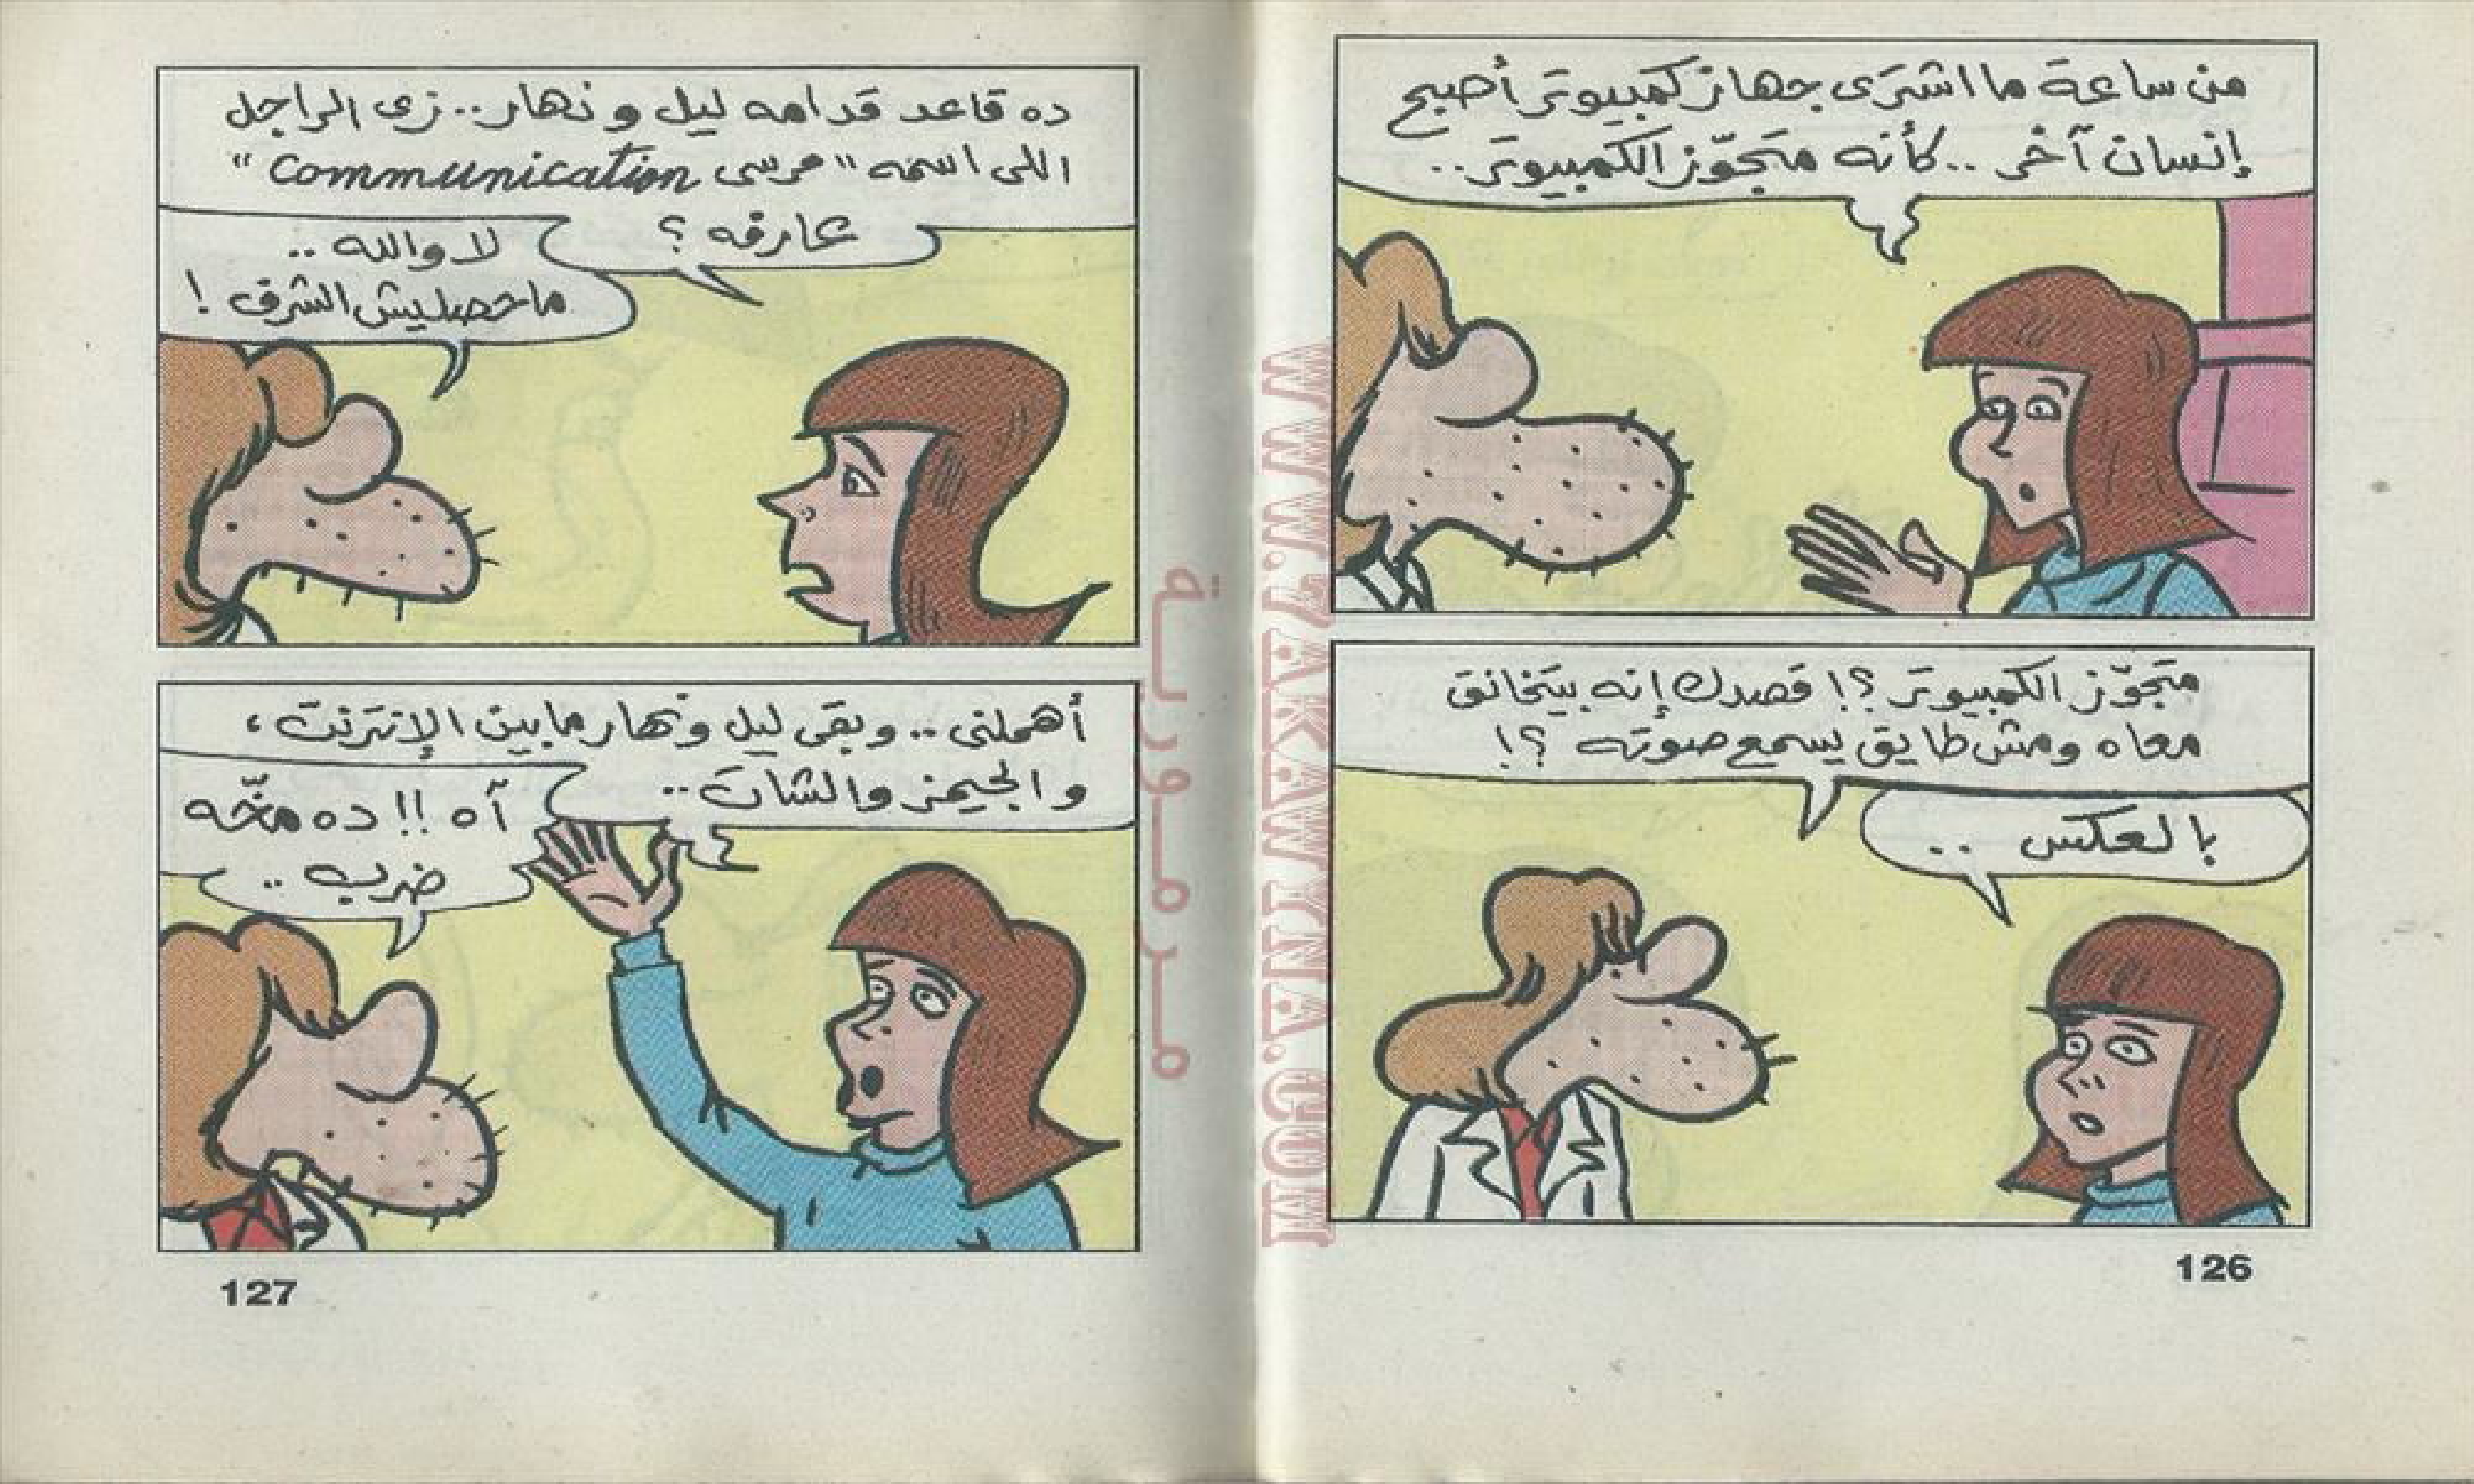 من ساعة ما اشترى جهاز كمبيوتر أصبح
إنسان آخر .. كأنه متجوّز الكمبيوتر ..
متجوّز الكمبيوتر ؟! قصدك إنه بيتخانق
معاه ومش طايق يسمع صوته ؟!
بالعكس ..
126
ده قاعد قدامه ليل و نهار .. زى الراجل
اللى اسمه "مرسى Communication"
عارفه ؟
لا والله ..
ماحصليش الشرف !
أهملنى .. وبقى ليل ونهار مابين الإنترنت ،
والجيمز والشات ..
آه !! ده مخّه
ضرب ..
127
WWW.7AKAWYNA.COM
مرمورية